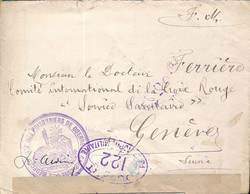 F. M.
Monsieur le Docteur Ferrière
Comité international de la Croix Rouge
"Service Sanitaire"
Genève
Suisse
PRISONNIERS DE GUERRE
122